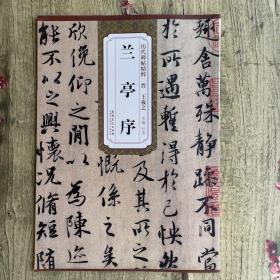 趣舍萬殊靜躁不同當
所遇蹔得於己怏
及其所之
慨係之矣
欣俛仰之閒以為陳
能不以之興懷況脩短随
历代碑帖精粹
晋 王羲之
兰亭序